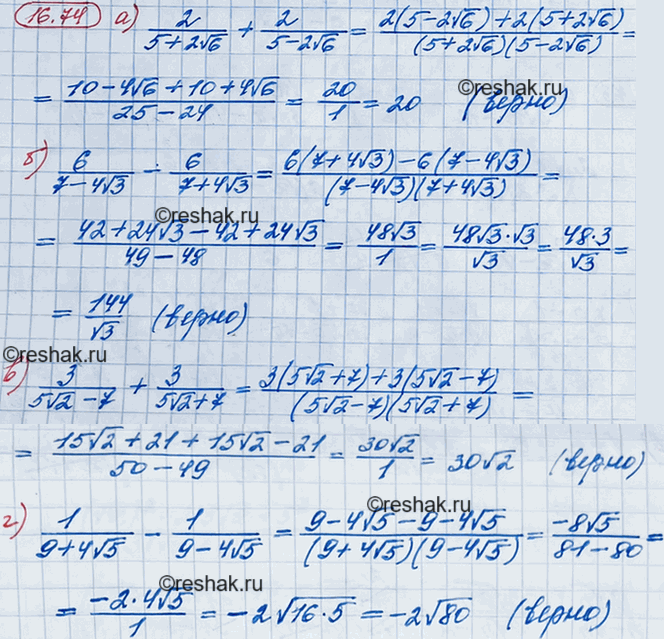 16.74 а) 2/(5+2√6) + 2/(5-2√6) = (2(5-2√6)+2(5+2√6))/((5+2√6)(5-2√6)) =
= (10-4√6+10+4√6)/(25-24) = 20/1 = 20 (верно)
©reshak.ru
б) 6/(7-4√3) - 6/(7+4√3) = (6(7+4√3)-6(7-4√3))/((7-4√3)(7+4√3)) =
©reshak.ru
= (42+24√3-42+24√3)/(49-48) = 48√3/1 = 48√3·√3/√3 = 48·3/√3 =
= 144/√3 (верно)
©reshak.ru
в) 3/(5√2-7) + 3/(5√2+7) = (3(5√2+7)+3(5√2-7))/((5√2-7)(5√2+7)) =
= (15√2+21+15√2-21)/(50-49) = 30√2/1 = 30√2 (верно)
©reshak.ru
г) 1/(9+4√5) - 1/(9-4√5) = (9-4√5-9-4√5)/((9+4√5)(9-4√5)) = -8√5/(81-80) =
= -2·4√5/1 = -2√(16·5) = -2√80 (верно)
©reshak.ru